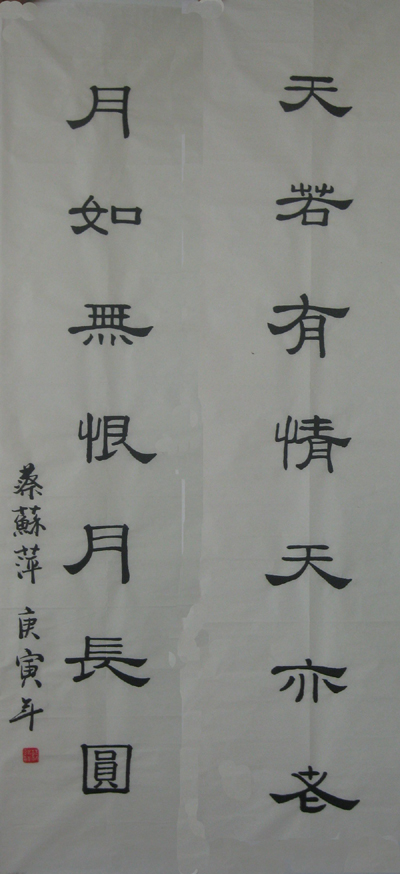 天若有情天亦老
月如無恨月長圓
蔡蘇萍 庚寅年